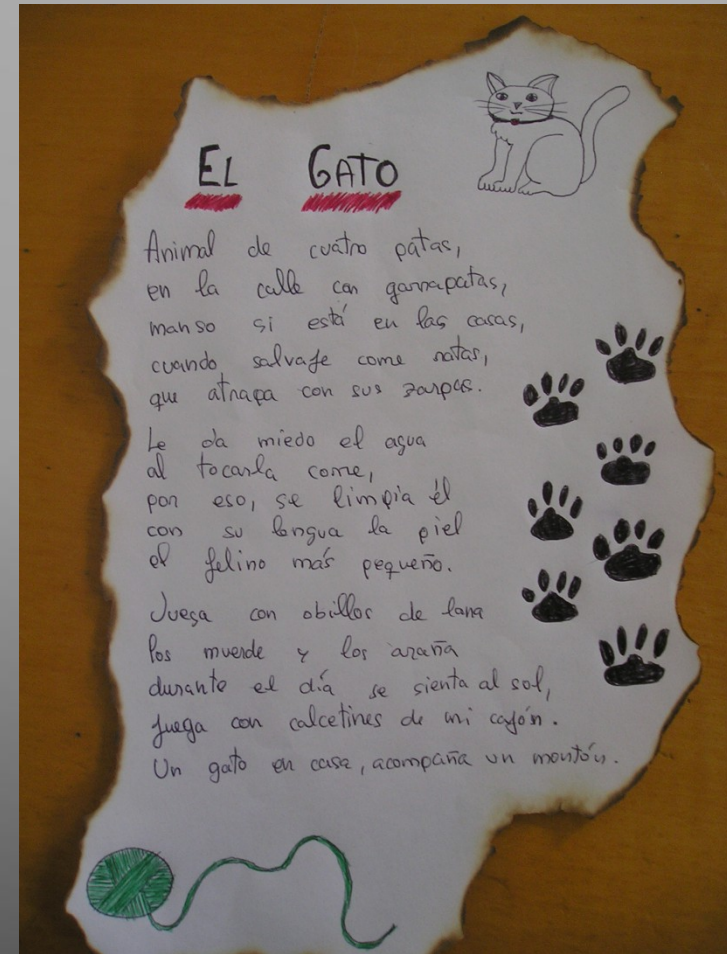 EL GATO
Animal de cuatro patas,
en la calle con garrapatas,
manso si está en las casas,
cuando salvaje come ratas,
que atrapa con sus zarpas.
Le da miedo el agua
al tocarla corre,
por eso, se limpia él
con su lengua la piel
el felino más pequeño.
Juega con obillos de lana
los muerde y los araña
durante el día se sienta al sol,
juega con calcetines de mi cajón.
Un gato en casa, acompaña un montón.